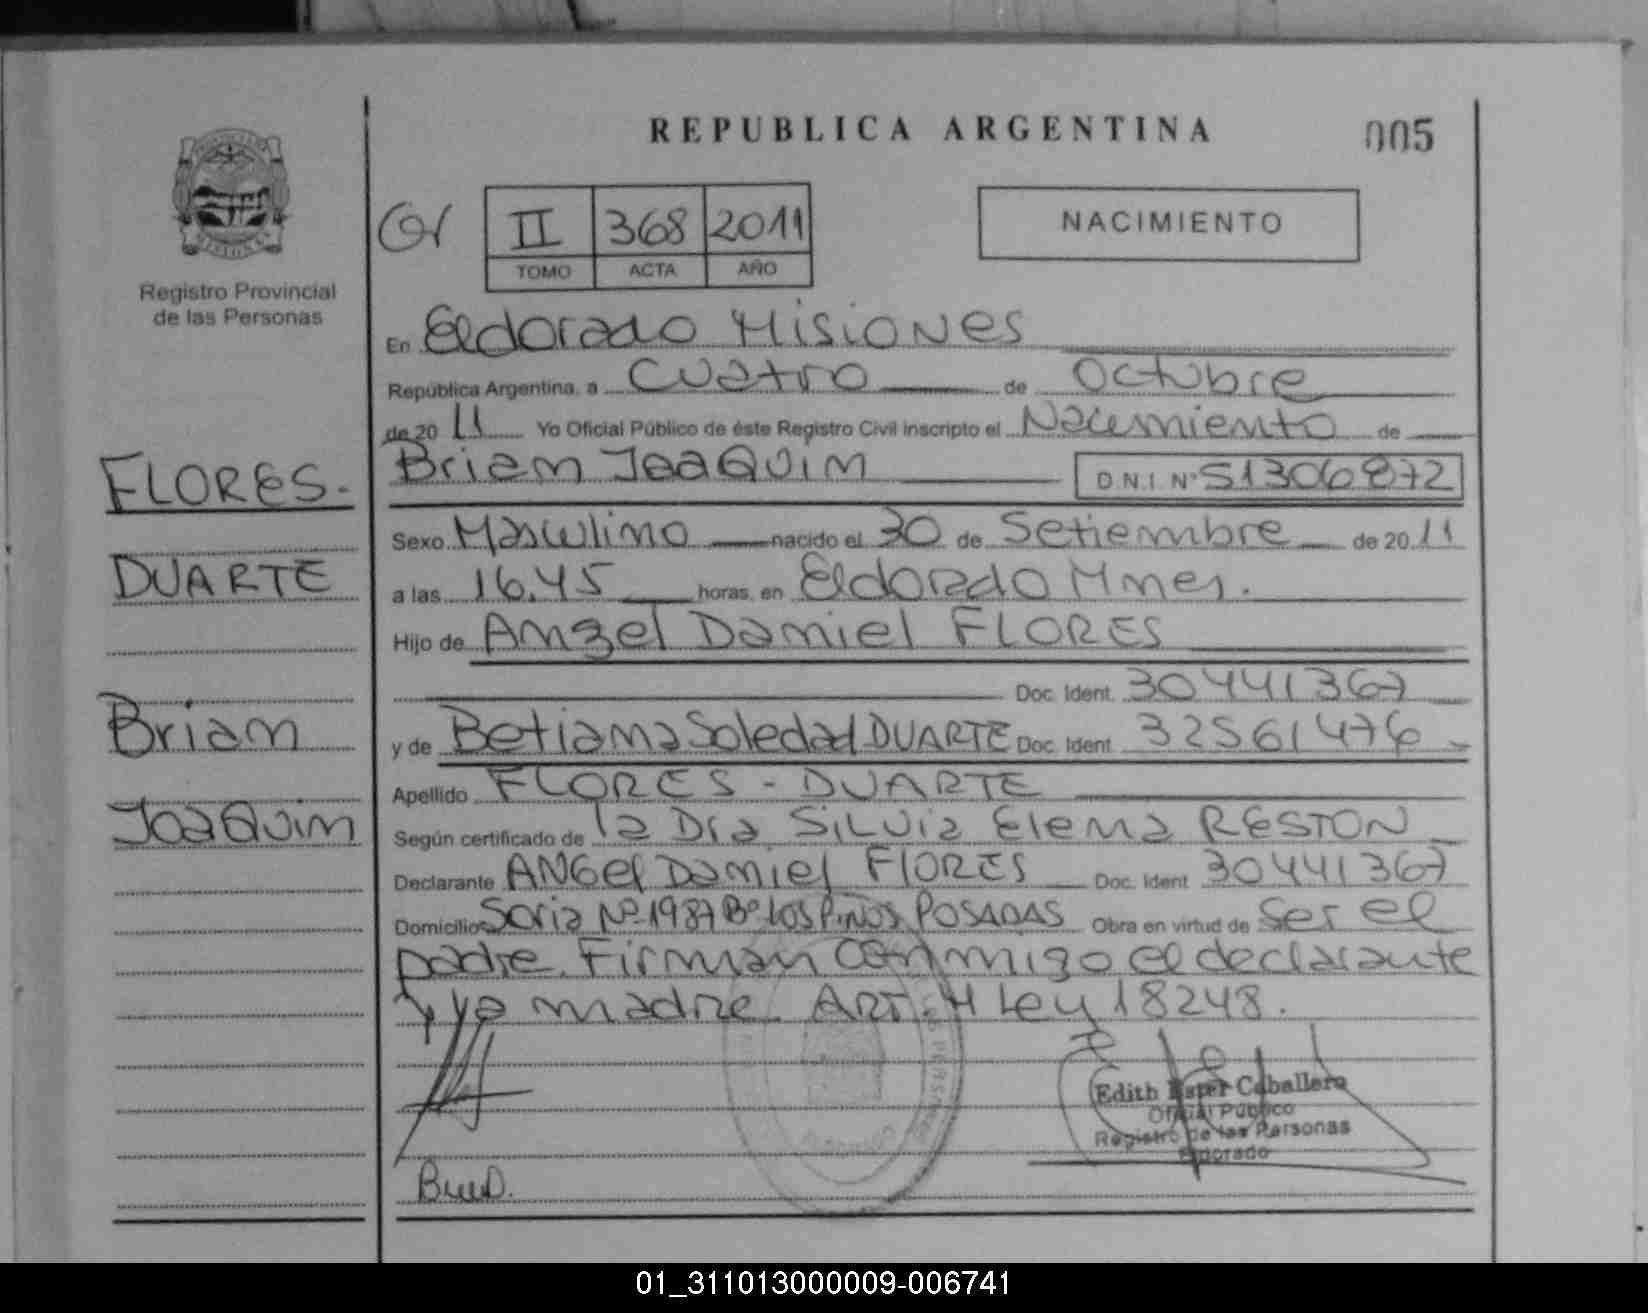 REPUBLICA ARGENTINA
005
Registro Provincial
de las Personas
II 368 2011
TOMO ACTA AÑO
NACIMIENTO
En Eldorado Misiones
República Argentina, a Cuatro de Octubre
de 20 11 Yo Oficial Público de éste Registro Civil inscripto el Nacimiento de
Brian Joaquim D.N.I. Nº 51306872
Sexo Masculino nacido el 30 de Setiembre de 20 11
a las 16.45 horas, en Eldorado Mnes.
Hijo de Angel Daniel FLORES
Doc. Ident. 30441367
y de Betiana Soledad DUARTE Doc. Ident. 32561476
Apellido FLORES - DUARTE
Según certificado de la Dra. Silvia Elena RESTON
Declarante ANGel Daniel FlORES Doc. Ident. 30441367
Domicilio Soria Nº 1987 Bº LOS PiÑOS POSADAS Obra en virtud de Ser el
padre. Firman conmigo el declarante
y ya madre. ART. 4 Ley 18248.
Edith Ester Caballero
Oficial Público
Registro de las Personas
Eldorado
FLORES.-
DUARTE
Brian
Joaquim
01_311013000009-006741